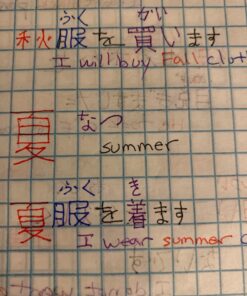 ふく かい
秋服を買います
I will buy Fall clot
夏 なつ
summer
ふく き
夏服を着ます
I wear summer c